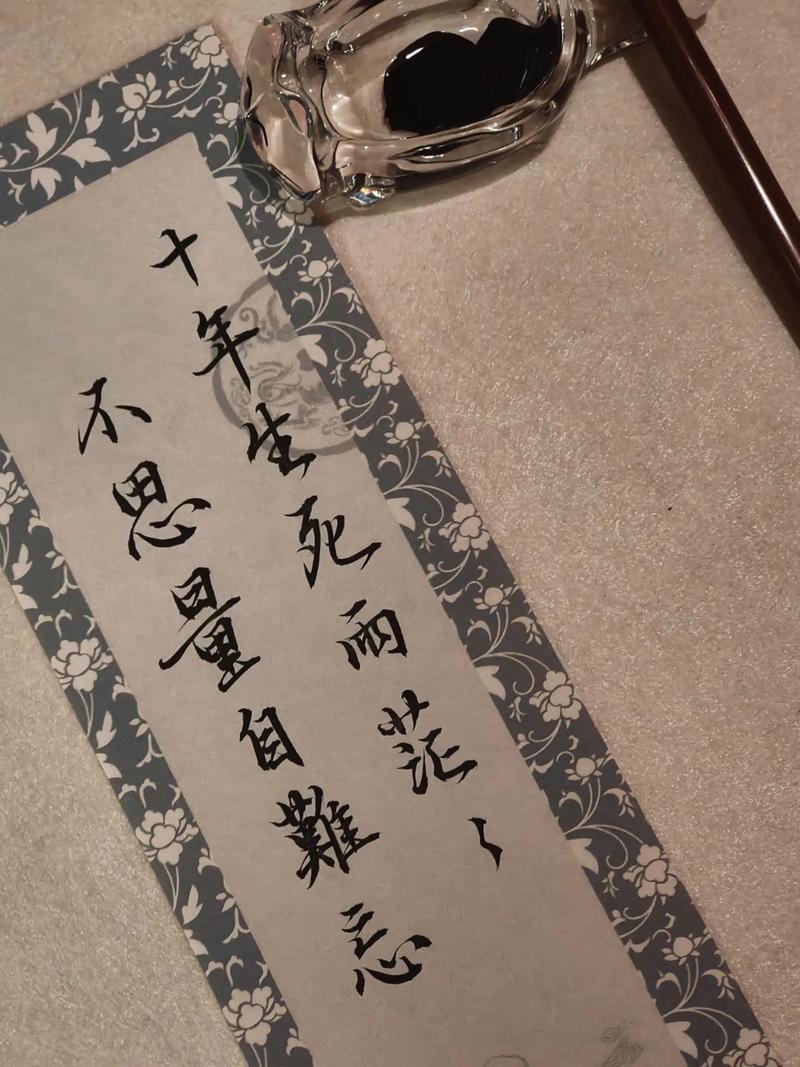 十年生死兩茫〻
不思量自難忘